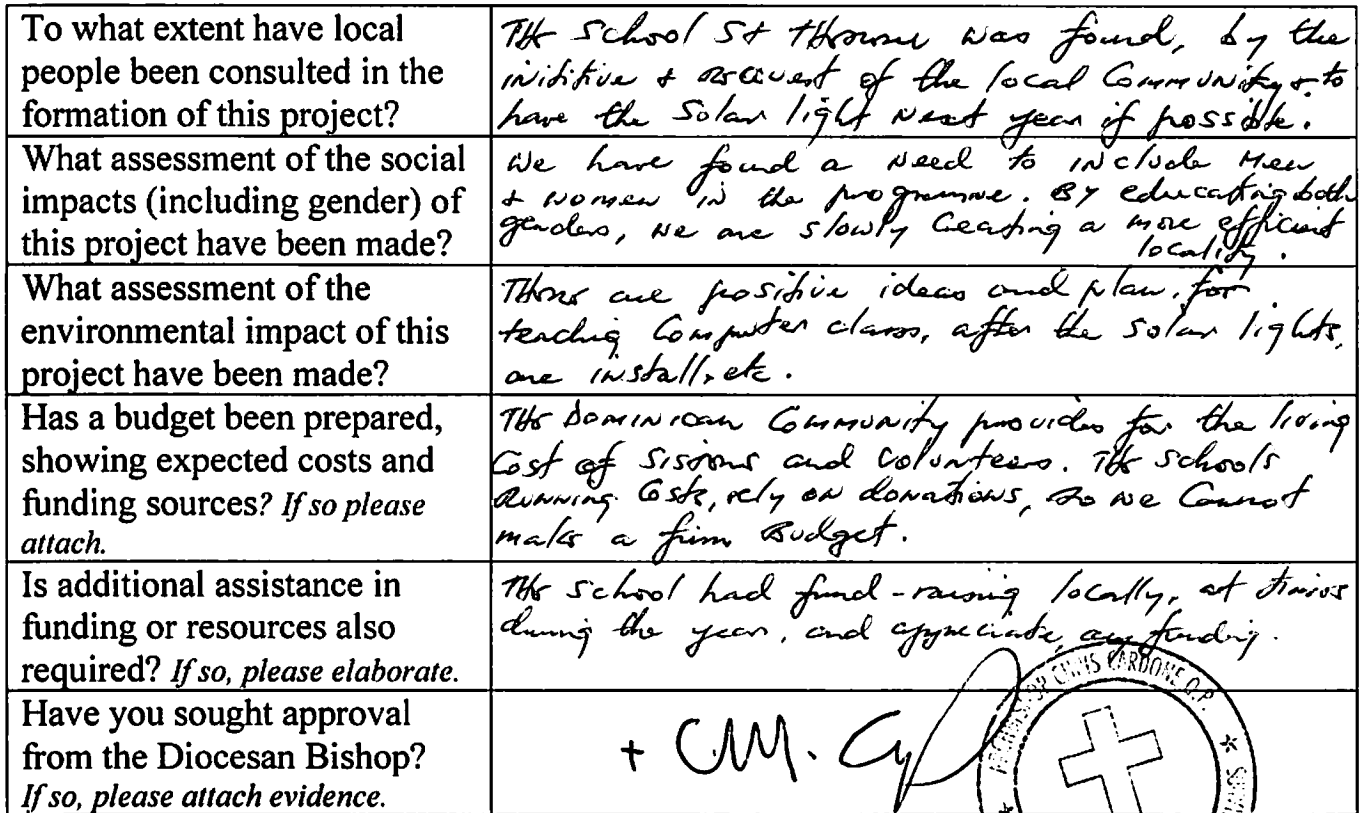 To what extent have local
people been consulted in the
formation of this project?
THE School St was found, by the
inititive + of the local Community + to
have the Solar light next year if possible.
What assessment of the social
impacts (including gender) of
this project have been made?
We have found a need to include Men
+ women in the programme. By educating both
genders, we are slowly Creating a more efficient
locality.
What assessment of the
environmental impact of this
project have been made?
are positive ideas and plan, for
teaching Computer class, after the Solar lights,
are install, etc.
Has a budget been prepared,
showing expected costs and
funding sources? If so please
attach.
THE Dominican Community provides for the living
Cost of and Volunteers. THE Schools
Running Costs, rely on donations, so we Cannot
make a firm Budget.
Is additional assistance in
funding or resources also
required? If so, please elaborate.
THE School had fund-raising locally, at times
during the year, and appreciate any funding.
Have you sought approval
from the Diocesan Bishop?
If so, please attach evidence.
+ CM.
CHRIS CARDONE O.P.